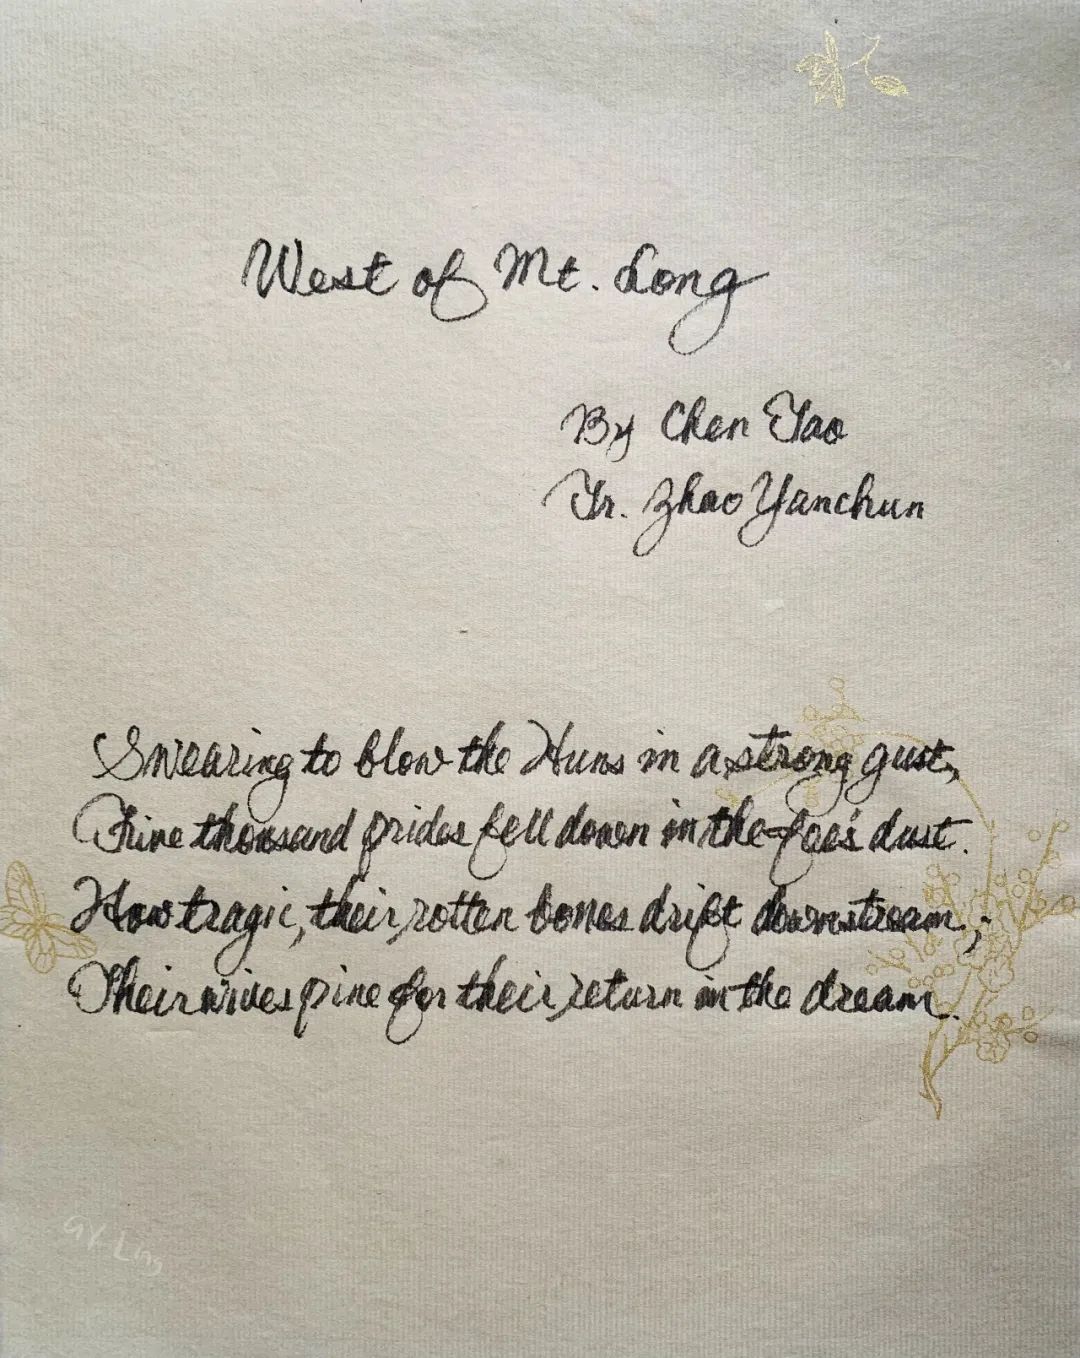 West of Mt. Long
By Chen Tao
Tr. Zhao Yanchun
Swearing to blow the Huns in a strong gust,
Five thousand prides fell down in the foe's dust.
How tragic, their rotten bones drift downstream,;
Their wives pine for their return in the dream.